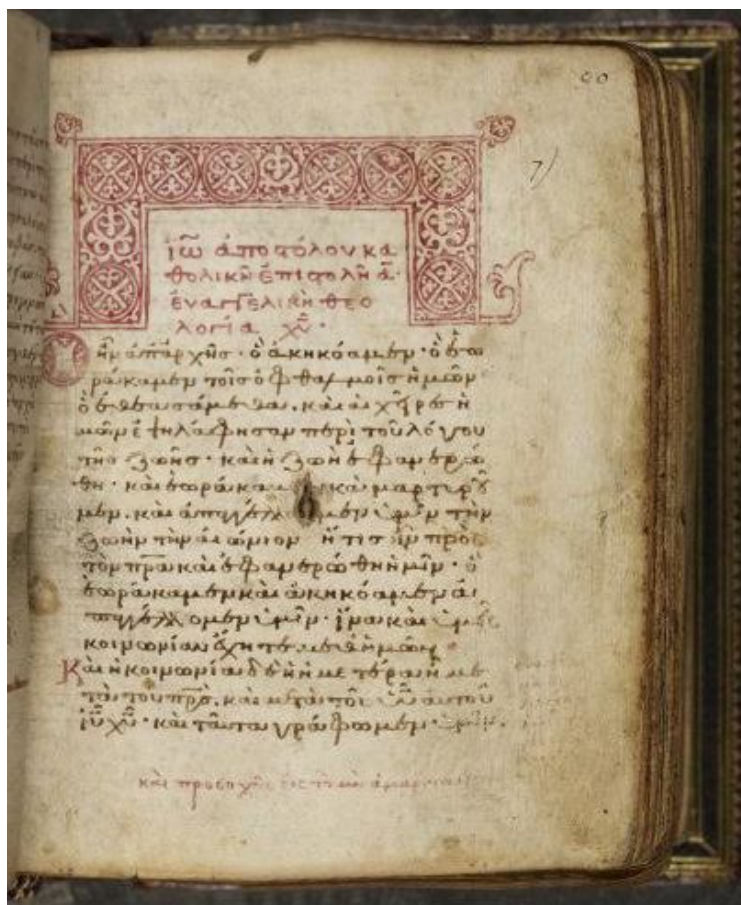 90
7)
ἰω̅ ἀποστόλου κα
θολικὴ ἐπιστολὴ α̅·
εὐαγγελικὴ θεο
λογία χ̅υ̅·
Ὃ ἦν ἀπαρχῆς· ὃ ἀκηκόαμεν· ὃ ἑω
ράκαμεν τοῖς ὀφθαλμοῖς ἡμῶν
ὃ ἐθεασάμεθα. καὶ αἱ χεῖρες ἡ
μῶν ἐψηλάφησαν περὶ τοῦ λόγου
τῆς ζωῆς· καὶ ἡ ζωὴ ἐφανερώ
θη· καὶ ἑωράκαμεν καὶ μαρτυροῦ
μεν. καὶ ἀπαγγέλλομεν ὑμῖν τὴν
ζωὴν τὴν αἰώνιον ἥτις ἦν πρὸς
τὸν π̅ρ̅α̅ καὶ ἐφανερώθη ἡμῖν· ὃ
ἑωράκαμεν καὶ ἀκηκόαμεν ἀ
παγγέλλομεν ὑμῖν· ἵνα καὶ ὑμεῖς
κοινωνίαν ἔχητε μεθ ἡμῶν
Καὶ ἡ κοινωνία δὲ ἡ ἡμετέρα ἡ με
τὰ τοῦ π̅ρ̅ς̅. καὶ μετὰ τοῦ υ̅υ̅ αὐτοῦ
ι̅υ̅ χ̅υ̅· καὶ ταῦτα γράφωμεν ὑμῖν.
καὶ προσοχῆς εἰς τὸ μὴ